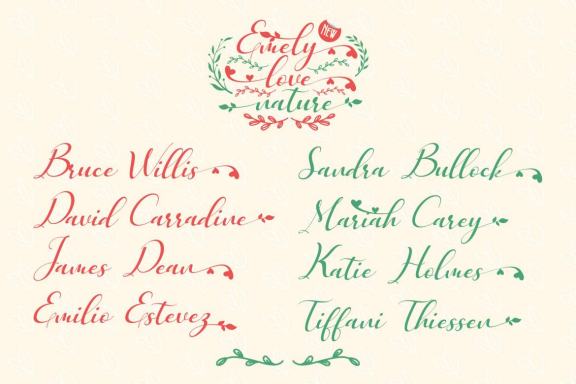 Emely
NEW
love
nature
Bruce Willis
David Carradine
James Dean
Emilio Estevez
Sandra Bullock
Mariah Carey
Katie Holmes
Tiffani Thiessen